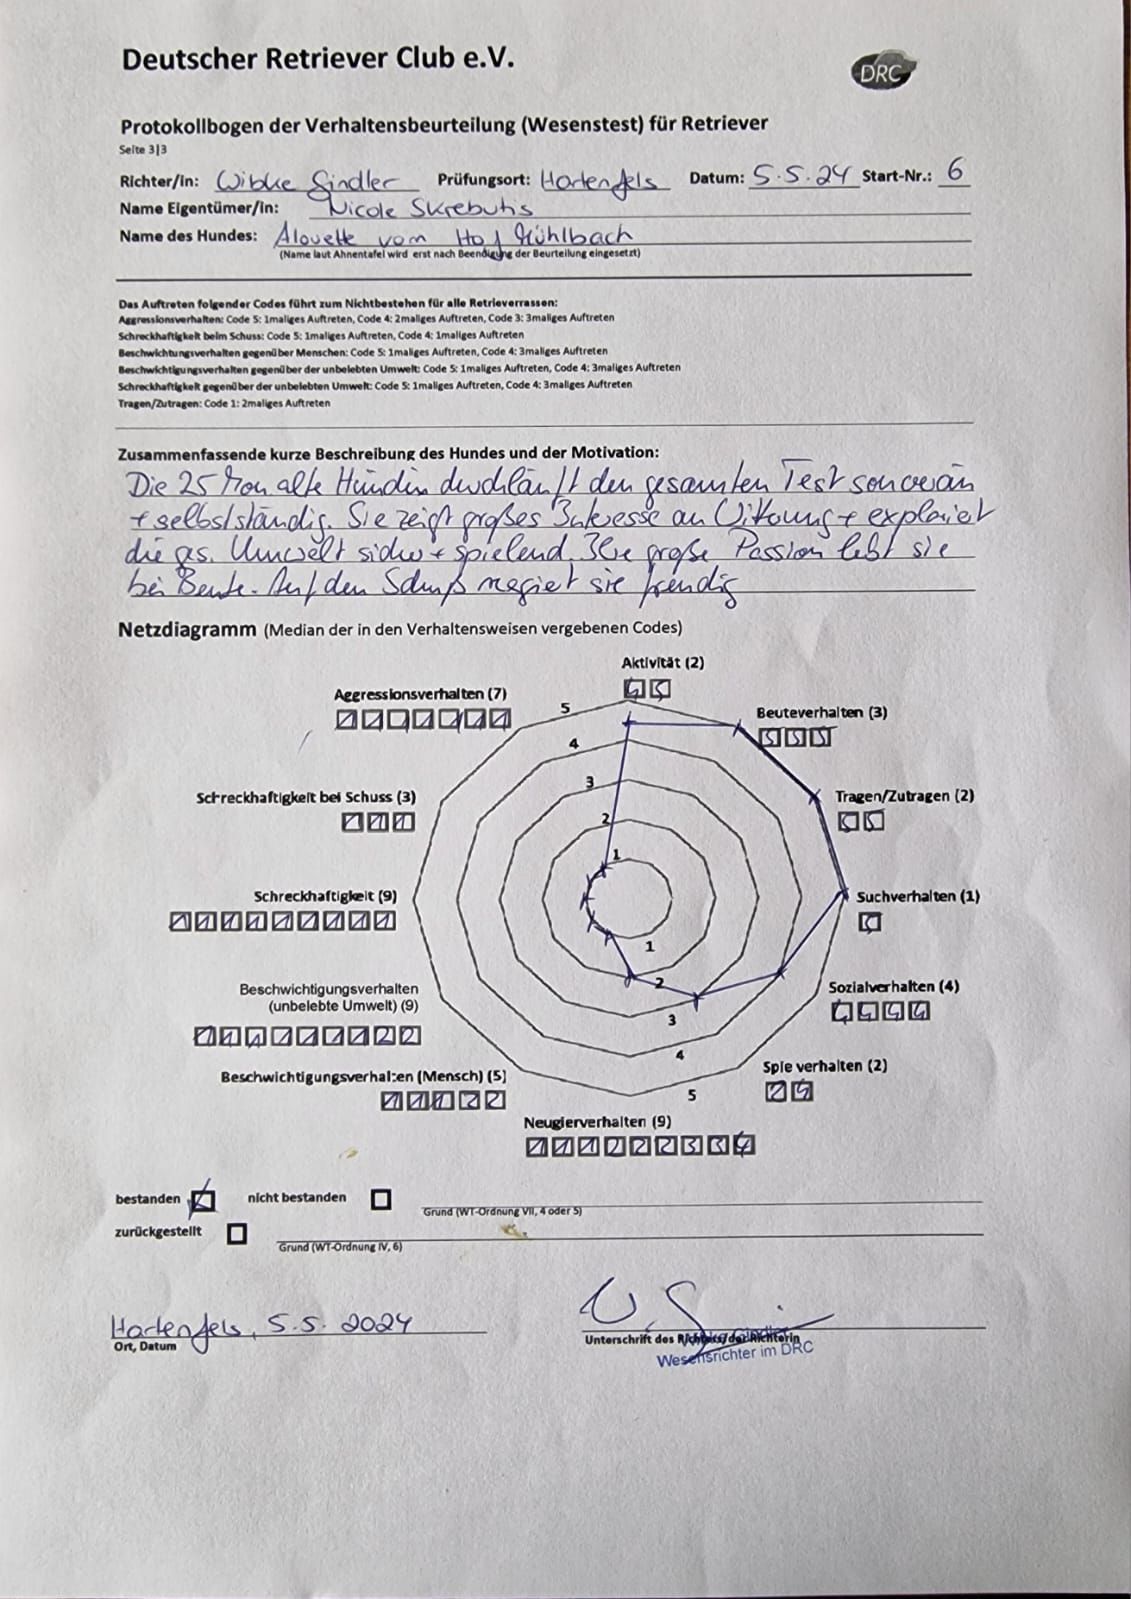 Deutscher Retriever Club e.V.
DRC
Protokollbogen der Verhaltensbeurteilung (Wesenstest) für Retriever
Seite 3|3
Richter/in: Wibke Gindler Prüfungsort: Hartenfels Datum: 5.5.24 Start-Nr.: 6
Name Eigentümer/in: Nicole Skrebutis
Name des Hundes: Alouette vom Hof Mühlbach
(Name laut Ahnentafel wird erst nach Beendigung der Beurteilung eingesetzt)
Das Auftreten folgender Codes führt zum Nichtbestehen für alle Retrieverrassen:
Aggressionsverhalten: Code 5: 1maliges Auftreten, Code 4: 2maliges Auftreten, Code 3: 3maliges Auftreten
Schreckhaftigkeit beim Schuss: Code 5: 1maliges Auftreten, Code 4: 1maliges Auftreten
Beschwichtungsverhalten gegenüber Menschen: Code 5: 1maliges Auftreten, Code 4: 3maliges Auftreten
Beschwichtigungsverhalten gegenüber der unbelebten Umwelt: Code 5: 1maliges Auftreten, Code 4: 3maliges Auftreten
Schreckhaftigkeit gegenüber der unbelebten Umwelt: Code 5: 1maliges Auftreten, Code 4: 3maliges Auftreten
Tragen/Zutragen: Code 1: 2maliges Auftreten
Zusammenfassende kurze Beschreibung des Hundes und der Motivation:
Die 25 Mon alte Hündin durchläuft den gesamten Test souverän
+ selbstständig. Sie zeigt großes Interesse an Witterung + exploriert
die ges. Umwelt sicher + spielend. Ihre große Passion lebt sie
bei Beute. Auf den Schuß reagiert sie freudig
Netzdiagramm (Median der in den Verhaltensweisen vergebenen Codes)
Aktivität (2)
4 5
Aggressionsverhalten (7)
1 1 1 1 1 1 1
Beuteverhalten (3)
5 5 5
Schreckhaftigkeit bei Schuss (3)
1 1 1
Tragen/Zutragen (2)
5 5
Schreckhaftigkeit (9)
1 1 1 1 1 1 1 1 1
Suchverhalten (1)
5
Beschwichtigungsverhalten
(unbelebte Umwelt) (9)
1 1 1 1 1 1 1 2 2
Sozialverhalten (4)
4 4 4 4
Beschwichtigungsverhalten (Mensch) (5)
1 1 1 2 2
Spielverhalten (2)
2 4
Neugierverhalten (9)
1 1 1 2 2 2 3 3 4
5
4
3
2
1
1
2
3
4
5
bestanden nicht bestanden
Grund (WT-Ordnung VII, 4 oder 5)
zurückgestellt
Grund (WT-Ordnung IV, 6)
Hartenfels, 5.5.2024
Ort, Datum
Unterschrift des Richters/der Richterin
Wesensrichter im DRC